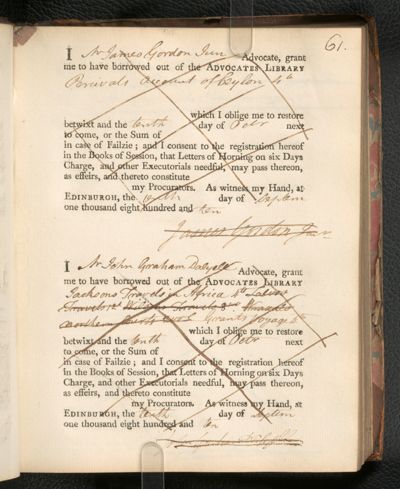 61.
I Mr James Gordon Junr Advocate, grant
me to have borrowed out of the ADVOCATES LIBRARY
Percivals account of Ceylon 4to
which I oblige me to restore
betwixt and the tenth day of Octr next
to come, or the Sum of
in case of Failzie; and I consent to the registration hereof
in the Books of Session, that Letters of Horning on six Days
Charge, and other Executorials needful, may pass thereon,
as effeirs, and thereto constitute
my Procurators. As witness my Hand, at
EDINBURGH, the tenth day of Septem
one thousand eight hundred and ten
James Gordon Junr
I Mr John Graham Dalyell Advocate, grant
me to have borrowed out of the ADVOCATES LIBRARY
Jacksons Travels in Africa 4to
Travels Travels
Grants Voyage
which I oblige me to restore
betwixt and the tenth day of Octr next
to come, or the Sum of
in case of Failzie; and I consent to the registration hereof
in the Books of Session, that Letters of Horning on six Days
Charge, and other Executorials needful, may pass thereon,
as effeirs, and thereto constitute
my Procurators. As witness my Hand, at
EDINBURGH, the tenth day of Septem
one thousand eight hundred and ten